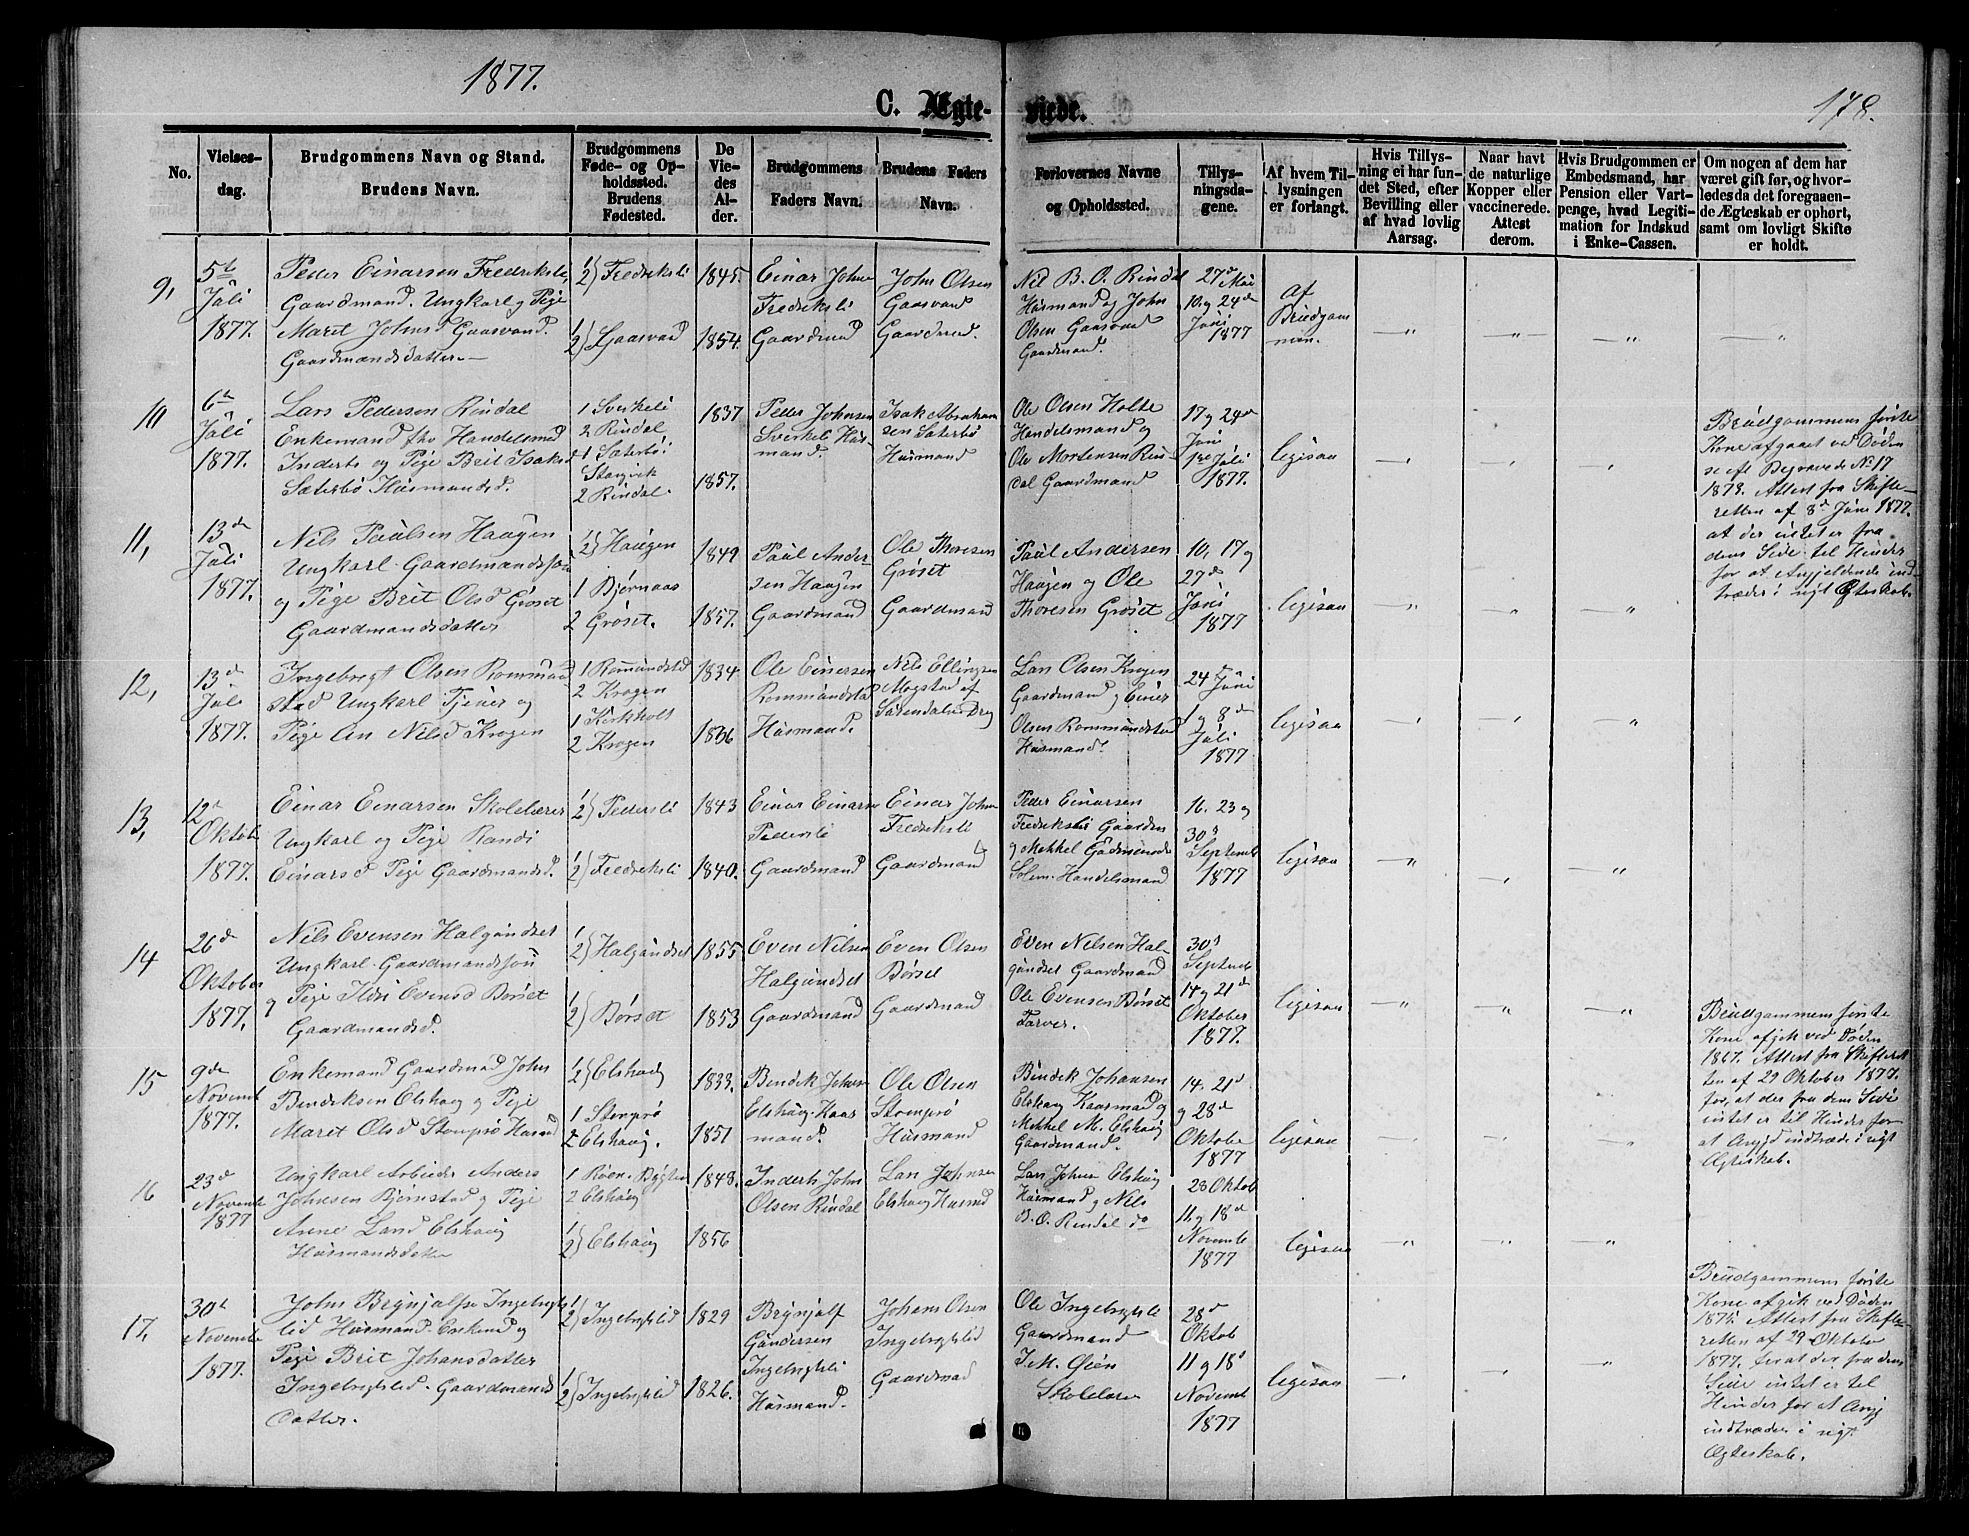 1877.
178.
C. Ægte-
viede.
No.
Vielses-
dag.
Brudgommens Navn og Stand.
Brudens Navn.
Brudgommens
Føde- og Op-
holdssted.
Brudens
Fødested.
De
Vie-
des
Al-
der.
Brudgommens
Faders Navn.
Brudens Faders
Navn.
Forlovernes Navne
og Opholdssted.
Tillys-
ningsda-
gene.
Af hvem Til-
lysningen
er forlangt.
Hvis Tillys-
ning ei har fun-
det Sted, efter
Bevilling eller
af hvad lovlig
Aarsag.
Naar havt
de naturlige
Kopper eller
vaccinerede.
Attest
derom.
Hvis Brudgommen er
Embedsmand, har
Pension eller Vart-
penge, hvad Legiti-
mation for Indskud
i Enke-Cassen.
Om nogen af dem har
været gift før, og hvor-
ledes da det foregaaen-
de Ægteskab er ophørt,
samt om lovligt Skifte
er holdt.
9,
5te
Juli
1877.
Peder Einarsen Fredriksli,
Gaardmand. Ungkarl og Pige
Maret Johnsd Gaasvand.
Gaardmandsdatter.
1
2) Fredriksli
1
2) Gaasvand
1845.
1854.
Einar Johns
Fredriksli
Gaardmand
John Olsen
Gaasvand
Gaardmand.
Nil B. O. Rindal
Husmand og John
Olsen Gaasvand
Gaardmand.
27de Mai
10. og 24de
Juni
1877
Af
Brudgom
men.
10
6te
Juli
1877.
Lars Pedersen Rindal
Enkemand fhv Handelsmd
Inderts og Pige Brit Isaksd
Sæterbø Husmandsd.
1 Sverkeli
2 Rindal
1 Sæterbø
Stangvik
2 Rindal.
1837
1857.
Peder Johnsen
Sverkeli Hus-
mand.
Isak Abraham
sen Sæterbø
Husmand
Ole Olsen Holte
Handelsmand og
Ole Mortensen Rin-
dal Gaardmand
17 og 24de
Juni
1ste Juli
1877.
ligesaa
Brudgommens første
Kone afgaaet ved Døden
se eft Begravede No 17
187. Attest fra Skifte-
retten af 8de Juni 1877.
at der intet er fra
dens Side til Hinder
for at Angjeldende ind-
træde i nyt Ægteskab.
11,
13de
Juli
1877.
Nils Paulsen Haugen
Ungkarl. Gaardmandssøn
og Pige Brit Olsd Grøset
Gaardmandsdatter
1
2) Haugen
1 Bjørnaas
2 Grøset.
1849
1857.
Paul Ander-
sen Haugen
Gaardmand
Ole Thoresen
Grøset
Gaardmand
Paul Andersen
Haugen og Ole
Thoresen Grøset
10, 17 og
27de
Juni
1877
ligesaa
12,
13de
Juli
1877.
Ingebrigt Olsen Rommund
stad Ungkarl Tjener og
Pige An Nilsd Krogen
1 Romundstad
2 Krogen
1 Kirkholt
2 Krogen
1834
1836
Ole Einersen
Rommundstad
Husmand.
Nils Ellingsen
Mogstad af
Surendalen
Lars Olsen Krogen
Gaardmand og Einer
Olsen Rommundstad
Husmand.
24de Juni
1 og 8de
Juli
1877
ligesaa
13,
12te
Oktob
1877.
Einar Einarsen Skolelærer
Ungkarl og Pige Randi
Einarsd Pige Gaardmandsd.
1
2) Pedersli
1
2) Fredriksli
1843
1840.
Einar Einarsen
Pedersli
Gaardmand
Einar Johns
Fredriksli
Gaardmand
Peder Einarsen
Fredriksli Gaardm
og Mekkel Gudmunds
Solem. Handelsmand
16. 23 og
30te
Septemb
1877
ligesaa
14
26de
Oktober
1877.
Nils Evensen Halgundset
Ungkarl. Gaardmandssøn
og Pige Ildri Evensd Børset
Gaardmandsd.
1
2) Halgundset
1
2) Børset
1855
1853
Even Nilsen
Halgundset
Gaardmand
Even Olsen
Børset
Gaardmand
Even Nilsen Hal-
gundset Gaardmand
Ole Evensen Børset
Farver.
30te
Septemb
14 og 21de
Oktober
1877.
ligesaa
15
9de
Novemb
1877.
Enkemand Gaardmand John
Bendiksen Elshaug og Pige
Maret Olsd Stomprø Husmd
1
2) Elshaug
1 Stomprø
2 Elshaug.
1833.
1851
Bendik Johns
Elshaug. Kaar
mand.
Ole Olsen
Stomprø
Husmand
Bendik Johansen
Elshaug Kaarmand og
Mekkel M. Elshaug
Gaardmand.
14. 21de
og 28de
Oktobe
1877
ligesaa
Brudgommens første
Kone afgik ved Døden
1867. Attest fra Skifteret
ten af 29 Oktober 1877.
for, at der fra dens Side
intet er til Hinder for
at Angjd indtræde i nyt
Ægteskab.
16
23de
Novembe
1877
Ungkarl Arbeider Anders
Johnsen Bjørnstad og Pige
Anne Larsd Elshaug
Husmandsdatter
2 Elshaug
1
2) Elshaug
1843.
1856
Inderts John
Olsen Rindal
Lars Johnsen
Elshaug Husmd
Lars Johnsen Elshaug
Husmand og Nils
B. O. Rindal do
28 Oktob
11 og 18de
Novembe
1877
ligesaa
17,
30te
Novembe
1877.
John Brynjulfs Ingebrigts
lid Husmand. Enkemd og
Pige Brit Johansdatter
Ingebrigtslid. Gaardmands
datter.
1
2) Ingebrigtslid
1
2) Ingebrigtslid
1829
1826.
Brynjulf
Gundersen
Ingebrigtsli
Husmand.
Johans Olsen
Ingebrigtslid
Gaardmand
Ole Ingebrigtsli
Gaardmand
I. M. Øien
Skolelærer
28de
Oktob
11 og 18de
Novemb
1877
ligesaa
Brudgommens første
Kone afgik ved Døden
187. Attest fra Skifte-
retten af 29 Oktober
1877. for at der fra dens
Side intet er til
Hinder for at Angj
indtræder i nyt
Ægteskab.